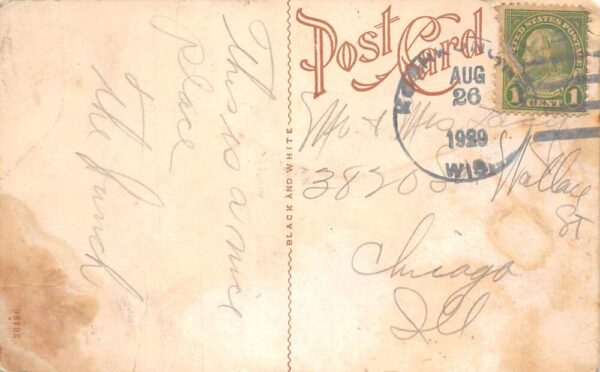 This is a nice
place
+ the bunch
26486
BLACK AND WHITE
Post Card
UNITED STATES POSTAGE
1 CENT 1
AUG
26
1929
WIS.
Mr + Mrs
3820 S. Wallace
St
Chicago
Ill